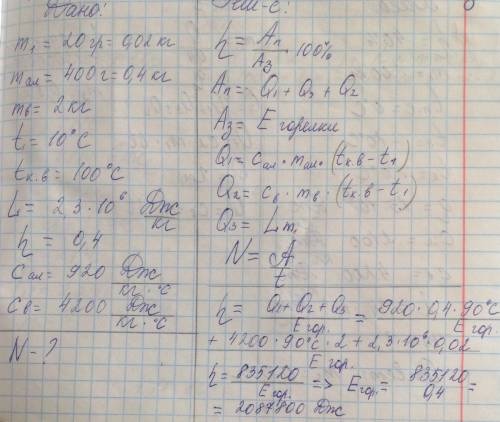 Дано:
m₁ = 20гр = 0,02 кг
mал = 400г = 0,4 кг
mв = 2кг
t₁ = 10°C
tк.в = 100°C
L = 2,3·10⁶ Дж/кг
η = 0,4
Cал = 920 Дж/кг·°C
Cв = 4200 Дж/кг·°C
N - ?
η = Aп/Aз · 100%
Aп = Q₁ + Q₃ + Q₂
Aз = E горелки
Q₁ = cал · mал · (tк.в - t₁)
Q₂ = cв · mв · (tк.в - t₁)
Q₃ = Lm₁
N = A/t
η = Q₁ + Q₂ + Q₃/E гор. = 920 · 0,4 · 90°C/E гор.
+ 4200 · 90°C · 2 + 2,3·10⁶ · 0,02/E гор.
η = 835120/E гор. => E гор. = 835120/0,4 =
= 2087800 Дж